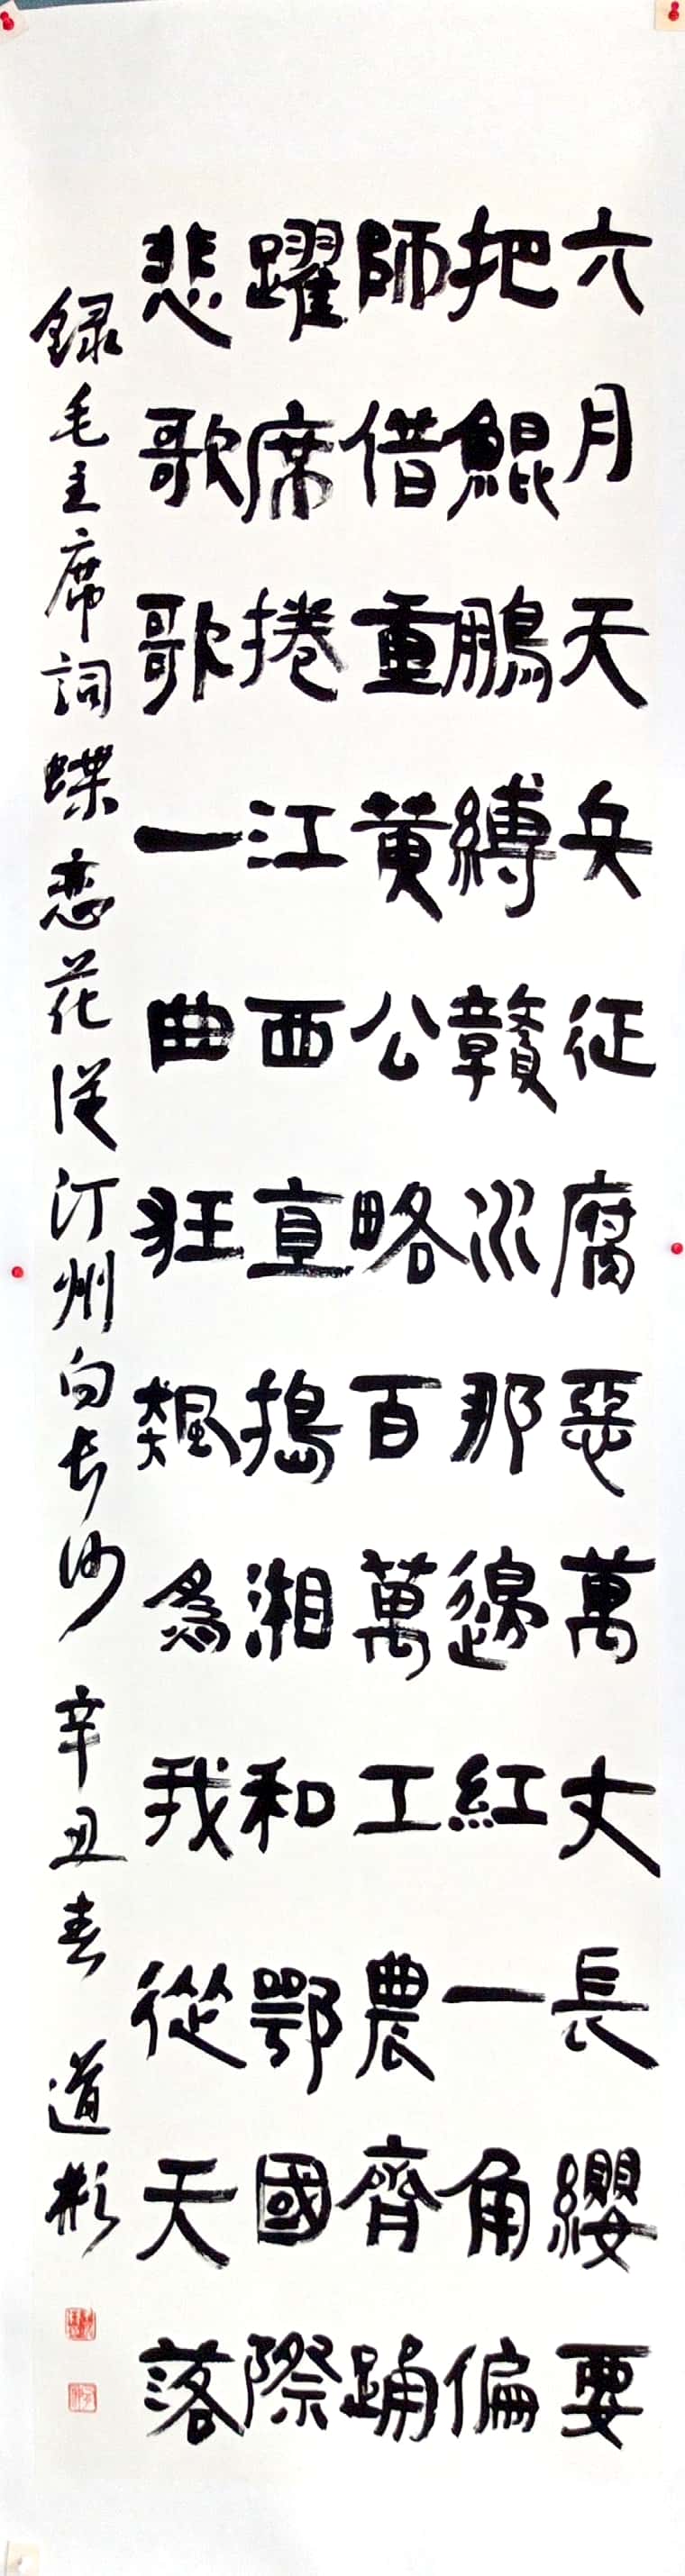 六月天兵征腐惡萬丈長纓要
把鯤鵬縛贛水那邊紅一角偏
師借重黃公略百萬工農齊踊
躍席捲江西直搗湘和鄂國際
悲歌歌一曲狂飆爲我從天落
録毛主席詞蝶恋花従汀州向长沙 辛丑春 道彬